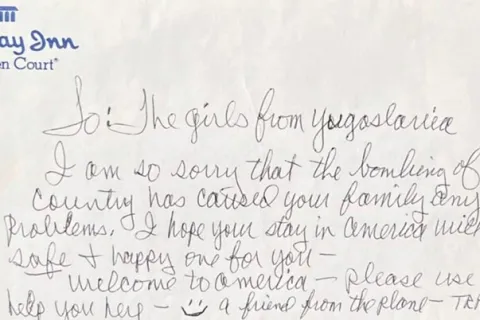 ay Inn
n Court®
To: The girls from Yugoslavia
I am so sorry that the bombing of
country has caused your family any
problems. I hope your stay in America will
safe + happy one for you –
Welcome to America – please use
help you here – a friend from the plane –